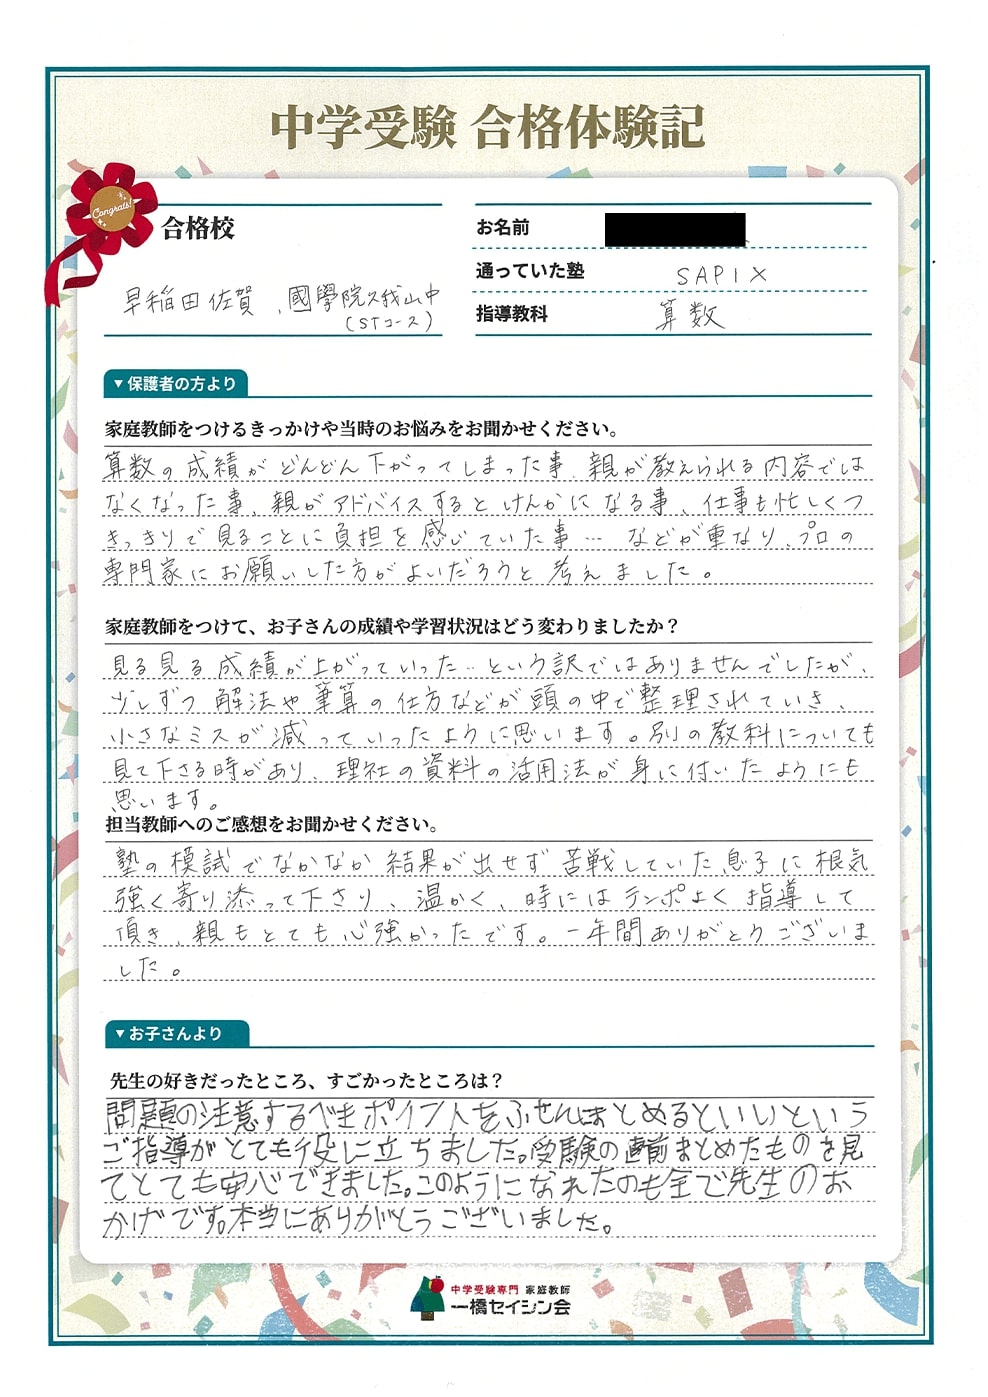 中学受験 合格体験記
Congrats!
合格校
早稲田佐賀、國學院久我山中
(STコース)
お名前
通っていた塾 SAPIX
指導教科 算数
▼保護者の方より
家庭教師をつけるきっかけや当時のお悩みをお聞かせください。
算数の成績がどんどん下がってしまった事、親が教えられる内容では
なくなった事、親がアドバイスするとけんかになる事、仕事も忙しくつ
きっきりで見ることに負担を感じていた事… などが重なり、プロの
専門家にお願いした方がよいだろうと考えました。
家庭教師をつけて、お子さんの成績や学習状況はどう変わりましたか？
見る見る成績が上がっていった…という訳ではありませんでしたが、
少しずつ解法や筆算の仕方などが頭の中で整理されていき、
小さなミスが減っていったように思います。別の教科についても
見て下さる時があり、理社の資料の活用法が身に付いたようにも
思います。
担当教師へのご感想をお聞かせください。
塾の模試でなかなか結果が出せず苦戦していた息子に根気
強く寄り添って下さり、温かく、時にはテンポよく指導して
頂き、親もとても心強かったです。一年間ありがとうございま
した。
▼お子さんより
先生の好きだったところ、すごかったところは？
問題の注意するべきポイントをふせんにまとめるといいという
ご指導がとても役に立ちました。受験の直前まとめたものを見
てとても安心できました。このようになれたのも全て先生のお
かげです。本当にありがとうございました。
中学受験専門 家庭教師
一橋セイシン会